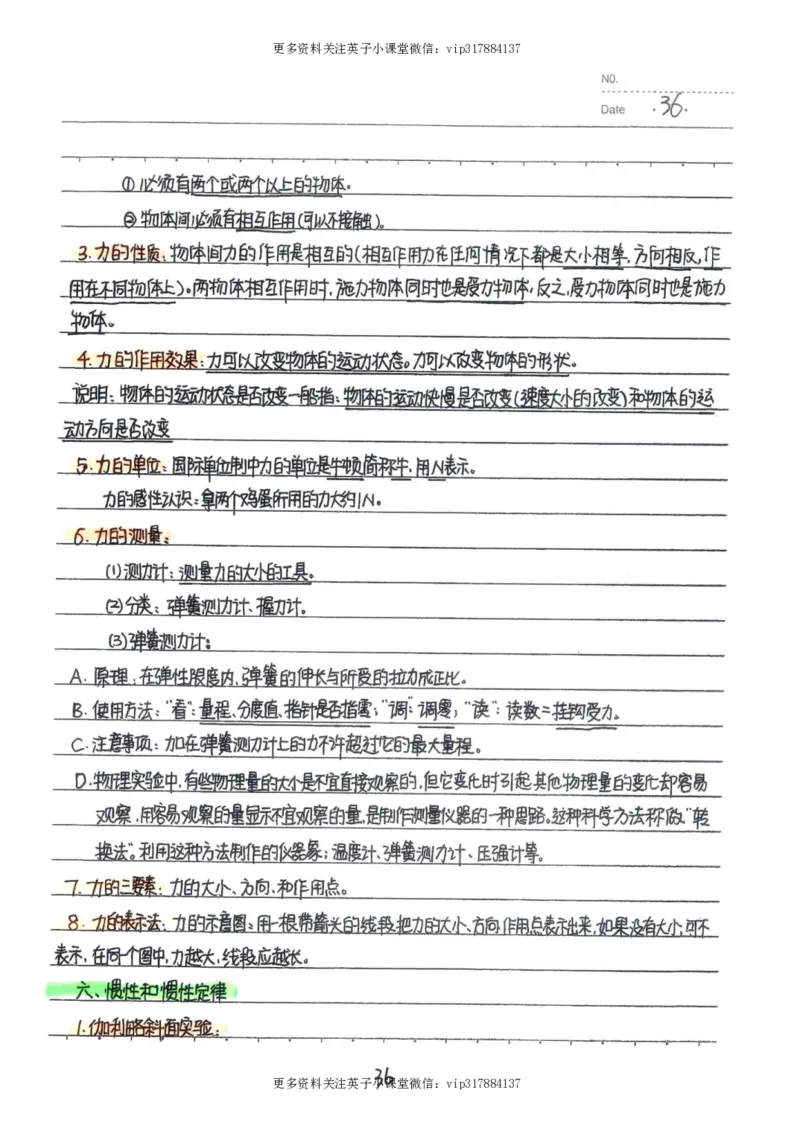 更多资料关注英子小课堂微信：vip317884137
NO.
Date ·36·
①必须有两个或两个以上的物体。
②物体间必须有相互作用(可以不接触)。
3.力的性质：物体间力的作用是相互的(相互作用力在任何情况下都是大小相等,方向相反,作
用在不同物体上)。两物体相互作用时,施力物体同时也是受力物体,反之,受力物体同时也是施力
物体。
4.力的作用效果：力可以改变物体的运动状态。力可以改变物体的形状。
说明：物体的运动状态是否改变一般指：物体的运动快慢是否改变(速度大小的改变)和物体的运
动方向是否改变
5.力的单位：国际单位制中力的单位是牛顿简称牛,用N表示。
力的感性认识：拿两个鸡蛋所用的力大约1N。
6.力的测量：
(1)测力计：测量力的大小的工具。
(2)分类：弹簧测力计、握力计。
(3)弹簧测力计：
A.原理：在弹性限度内,弹簧的伸长与所受的拉力成正比。
B.使用方法："看"：量程、分度值、指针是否指零；"调"：调零；"读"：读数=挂钩受力。
C.注意事项：加在弹簧测力计上的力不许超过它的最大量程。
D.物理实验中,有些物理量的大小是不宜直接观察的,但它变化时引起其他物理量的变化却容易
观察,用容易观察的量显示不宜观察的量,是制作测量仪器的一种思路。这种科学方法称做"转
换法"。利用这种方法制作的仪器象：温度计、弹簧测力计、压强计等。
7.力的三要素：力的大小、方向、和作用点。
8.力的表示法：力的示意图：用一根带箭头的线段把力的大小、方向、作用点表示出来,如果没有大小,可不
表示,在同一个图中,力越大,线段应越长。
六、惯性和惯性定律
1.伽利略斜面实验：
36
更多资料关注英子小课堂微信：vip317884137